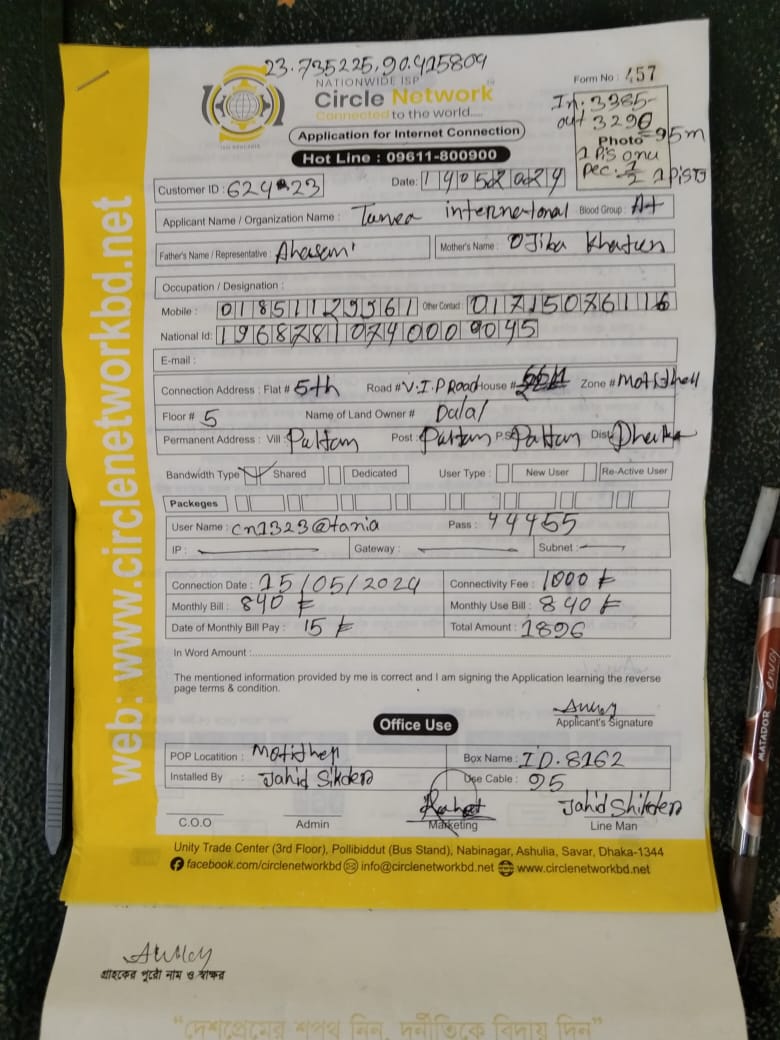 23.735225,90.415809
NATIONWIDE ISP
Circle Network
Connected to the world....
Form No : 157
In: 3385-
out 3290
=95m
Photo
1 Pis onu
Application for Internet Connection
Hot Line : 09611-800900
Customer ID : 624
23
Date: 14052024
Applicant Name / Organization Name : international Blood Group : A+
Father's Name / Representative : Ahasan Mother's Name : Khatun
Occupation / Designation :
Mobile : 01851129961 Other Contact : 01715076116
National Id: 19687810740009045
E-mail :
Connection Address : Flat # 5th Road # V.I.P Road House # Zone # Motijheel
Floor # 5 Name of Land Owner # Dalal
Permanent Address : Vill : Paltan Post : Paltan P.S: Paltan Dist: Dhaka
Bandwidth Type Shared Dedicated User Type : New User Re-Active User
Packeges
User Name : cn1323@tania Pass : 44455
IP : Gateway : Subnet :
Connection Date : 15/05/2024 Connectivity Fee : 1000 ৳
Monthly Bill : 840 ৳ Monthly Use Bill : 840 ৳
Date of Monthly Bill Pay : 15 ৳ Total Amount : 1896
In Word Amount :
The mentioned information provided by me is correct and I am signing the Application learning the reverse
page terms & condition.
Applicant's Signature
Office Use
POP Locatition : Motijheel Box Name : ID.8162
Installed By : Jahid Sikder Use Cable : 95
Jahid Shikder
C.O.O Admin Marketing Line Man
Unity Trade Center (3rd Floor), Pollibiddut (Bus Stand), Nabinagar, Ashulia, Savar, Dhaka-1344
facebook.com/circlenetworkbd info@circlenetworkbd.net www.circlenetworkbd.net
web: www.circlenetworkbd.net
গ্রাহকের পুরো নাম ও স্বাক্ষর
"দেশপ্রেমের শপথ নিন, দুর্নীতিকে বিদায় দিন"
MATADOR